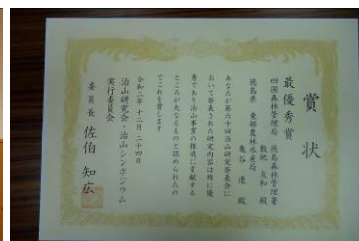 賞状
最優秀賞
四国森林管理局 徳島森林管理署
敷地 友和 殿
徳島県 東部農林水産局
亀谷 渡 殿
あなたが第六十回治山研究発表会に
おいて発表された研究内容は特に優
秀であり治山事業の推進に貢献する
ところが大なるものと認められたの
でこれを賞します
令和二年十二月二十四日
治山研究会・治山シンポジウム
実行委員会
委員長 佐伯 知広